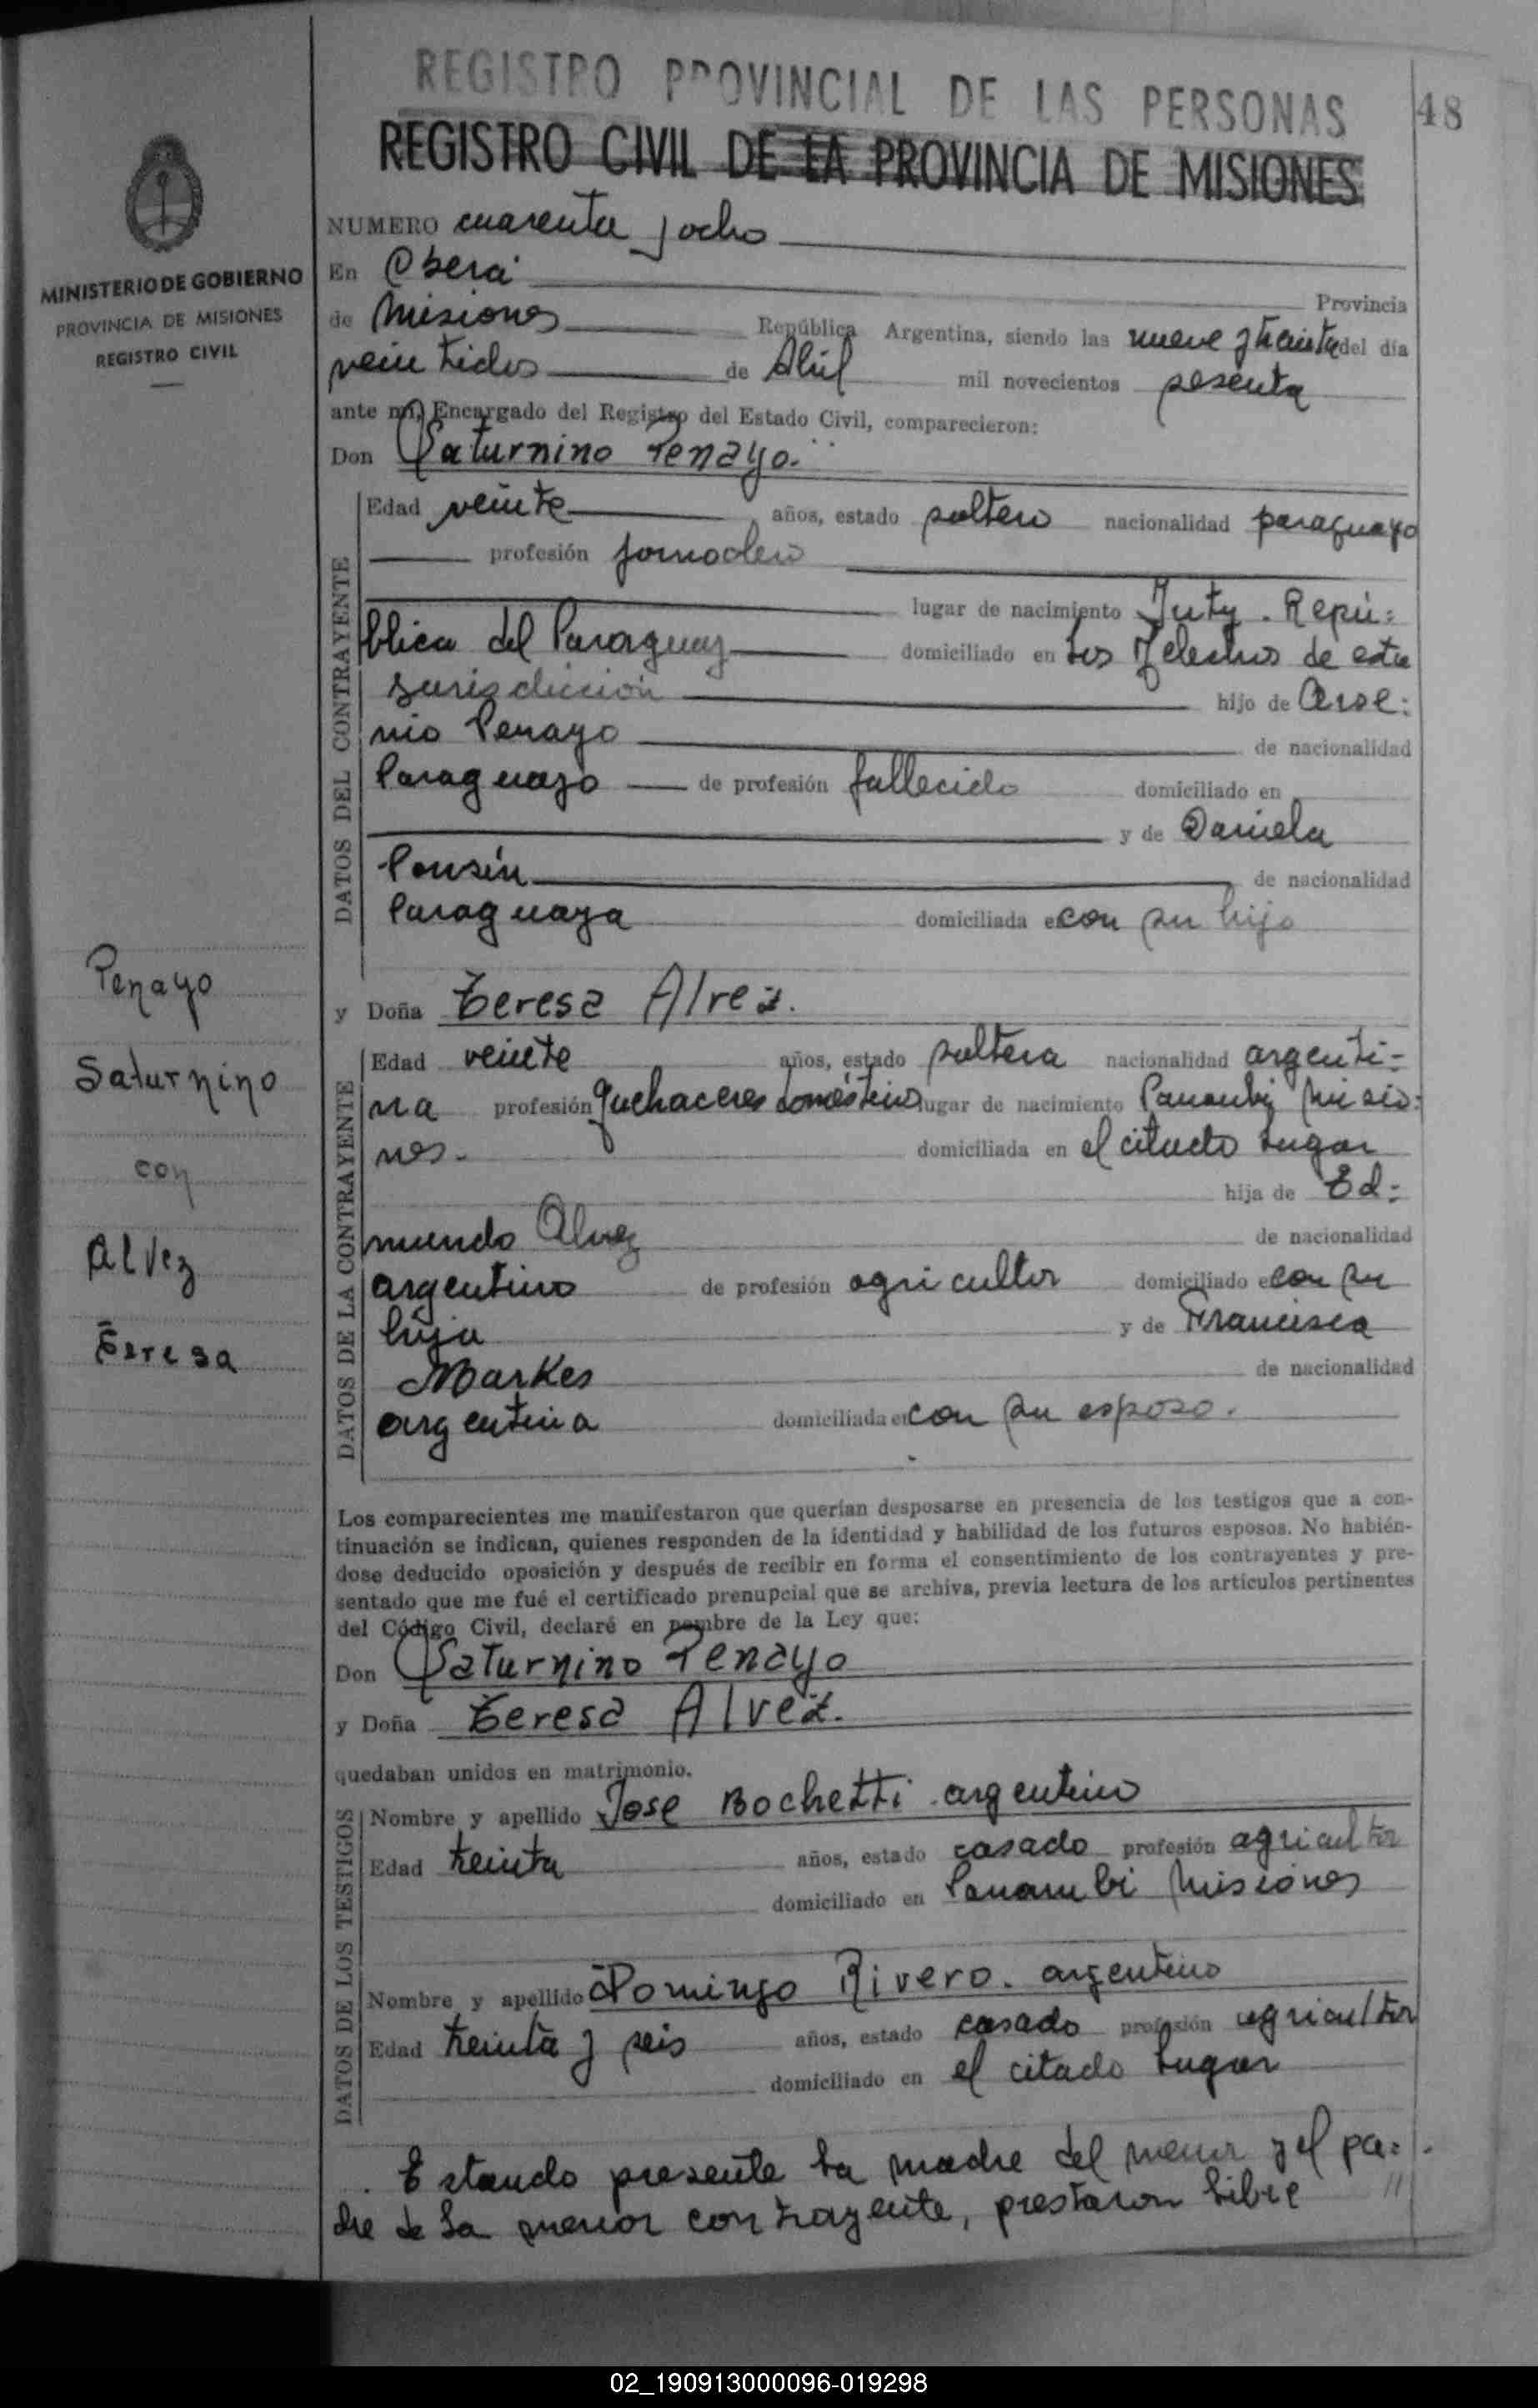 REGISTRO PROVINCIAL DE LAS PERSONAS
48
REGISTRO CIVIL DE LA PROVINCIA DE MISIONES
MINISTERIO DE GOBIERNO
PROVINCIA DE MISIONES
REGISTRO CIVIL
NUMERO cuarenta y ocho
En Oberá Provincia
de Misiones República Argentina, siendo las nueve y treinta del día
veintidos de Abril mil novecientos sesenta
ante mí, Encargado del Registro del Estado Civil, comparecieron:
Don Saturnino Penayo.
DATOS DEL CONTRAYENTE
Edad veinte años, estado soltero nacionalidad paraguayo
profesión jornalero
lugar de nacimiento Yuty. Repú:
blica del Paraguay domiciliado en Los Helechos de esta
Jurisdicción hijo de Arse:
nio Penayo de nacionalidad
Paraguayo de profesión fallecido domiciliado en
y de Daniela
de nacionalidad
Paraguaya domiciliada en con su hijo
Penayo
Saturnino
con
Alvez
Teresa
y Doña Teresa Alvez.
DATOS DE LA CONTRAYENTE
Edad veinte años, estado soltera nacionalidad argenti-
na profesión Quehaceres domésticos lugar de nacimiento Panambi Misio:
nes. domiciliada en el citado lugar
hija de Ed:
mundo Alvez de nacionalidad
argentino de profesión agricultor domiciliado en con su
hija y de Francisca
Markes de nacionalidad
argentina domiciliada en con su esposo.
Los comparecientes me manifestaron que querían desposarse en presencia de los testigos que a con-
tinuación se indican, quienes responden de la identidad y habilidad de los futuros esposos. No habién-
dose deducido oposición y después de recibir en forma el consentimiento de los contrayentes y pre-
sentado que me fué el certificado prenupcial que se archiva, previa lectura de los artículos pertinentes
del Código Civil, declaré en nombre de la Ley que:
Don Saturnino Penayo
y Doña Teresa Alvez.
quedaban unidos en matrimonio.
DATOS DE LOS TESTIGOS
Nombre y apellido Jose Bochetti argentino
Edad treinta años, estado casado profesión agricultor
domiciliado en Panambi Misiones
Nombre y apellido Domingo Rivero. argentino
Edad treinta y seis años, estado casado profesión agricultor
domiciliado en el citado lugar
Estando presente la madre del menor y el pa:
dre de la menor contrayente, prestaron libre ///
02_190913000096-019298